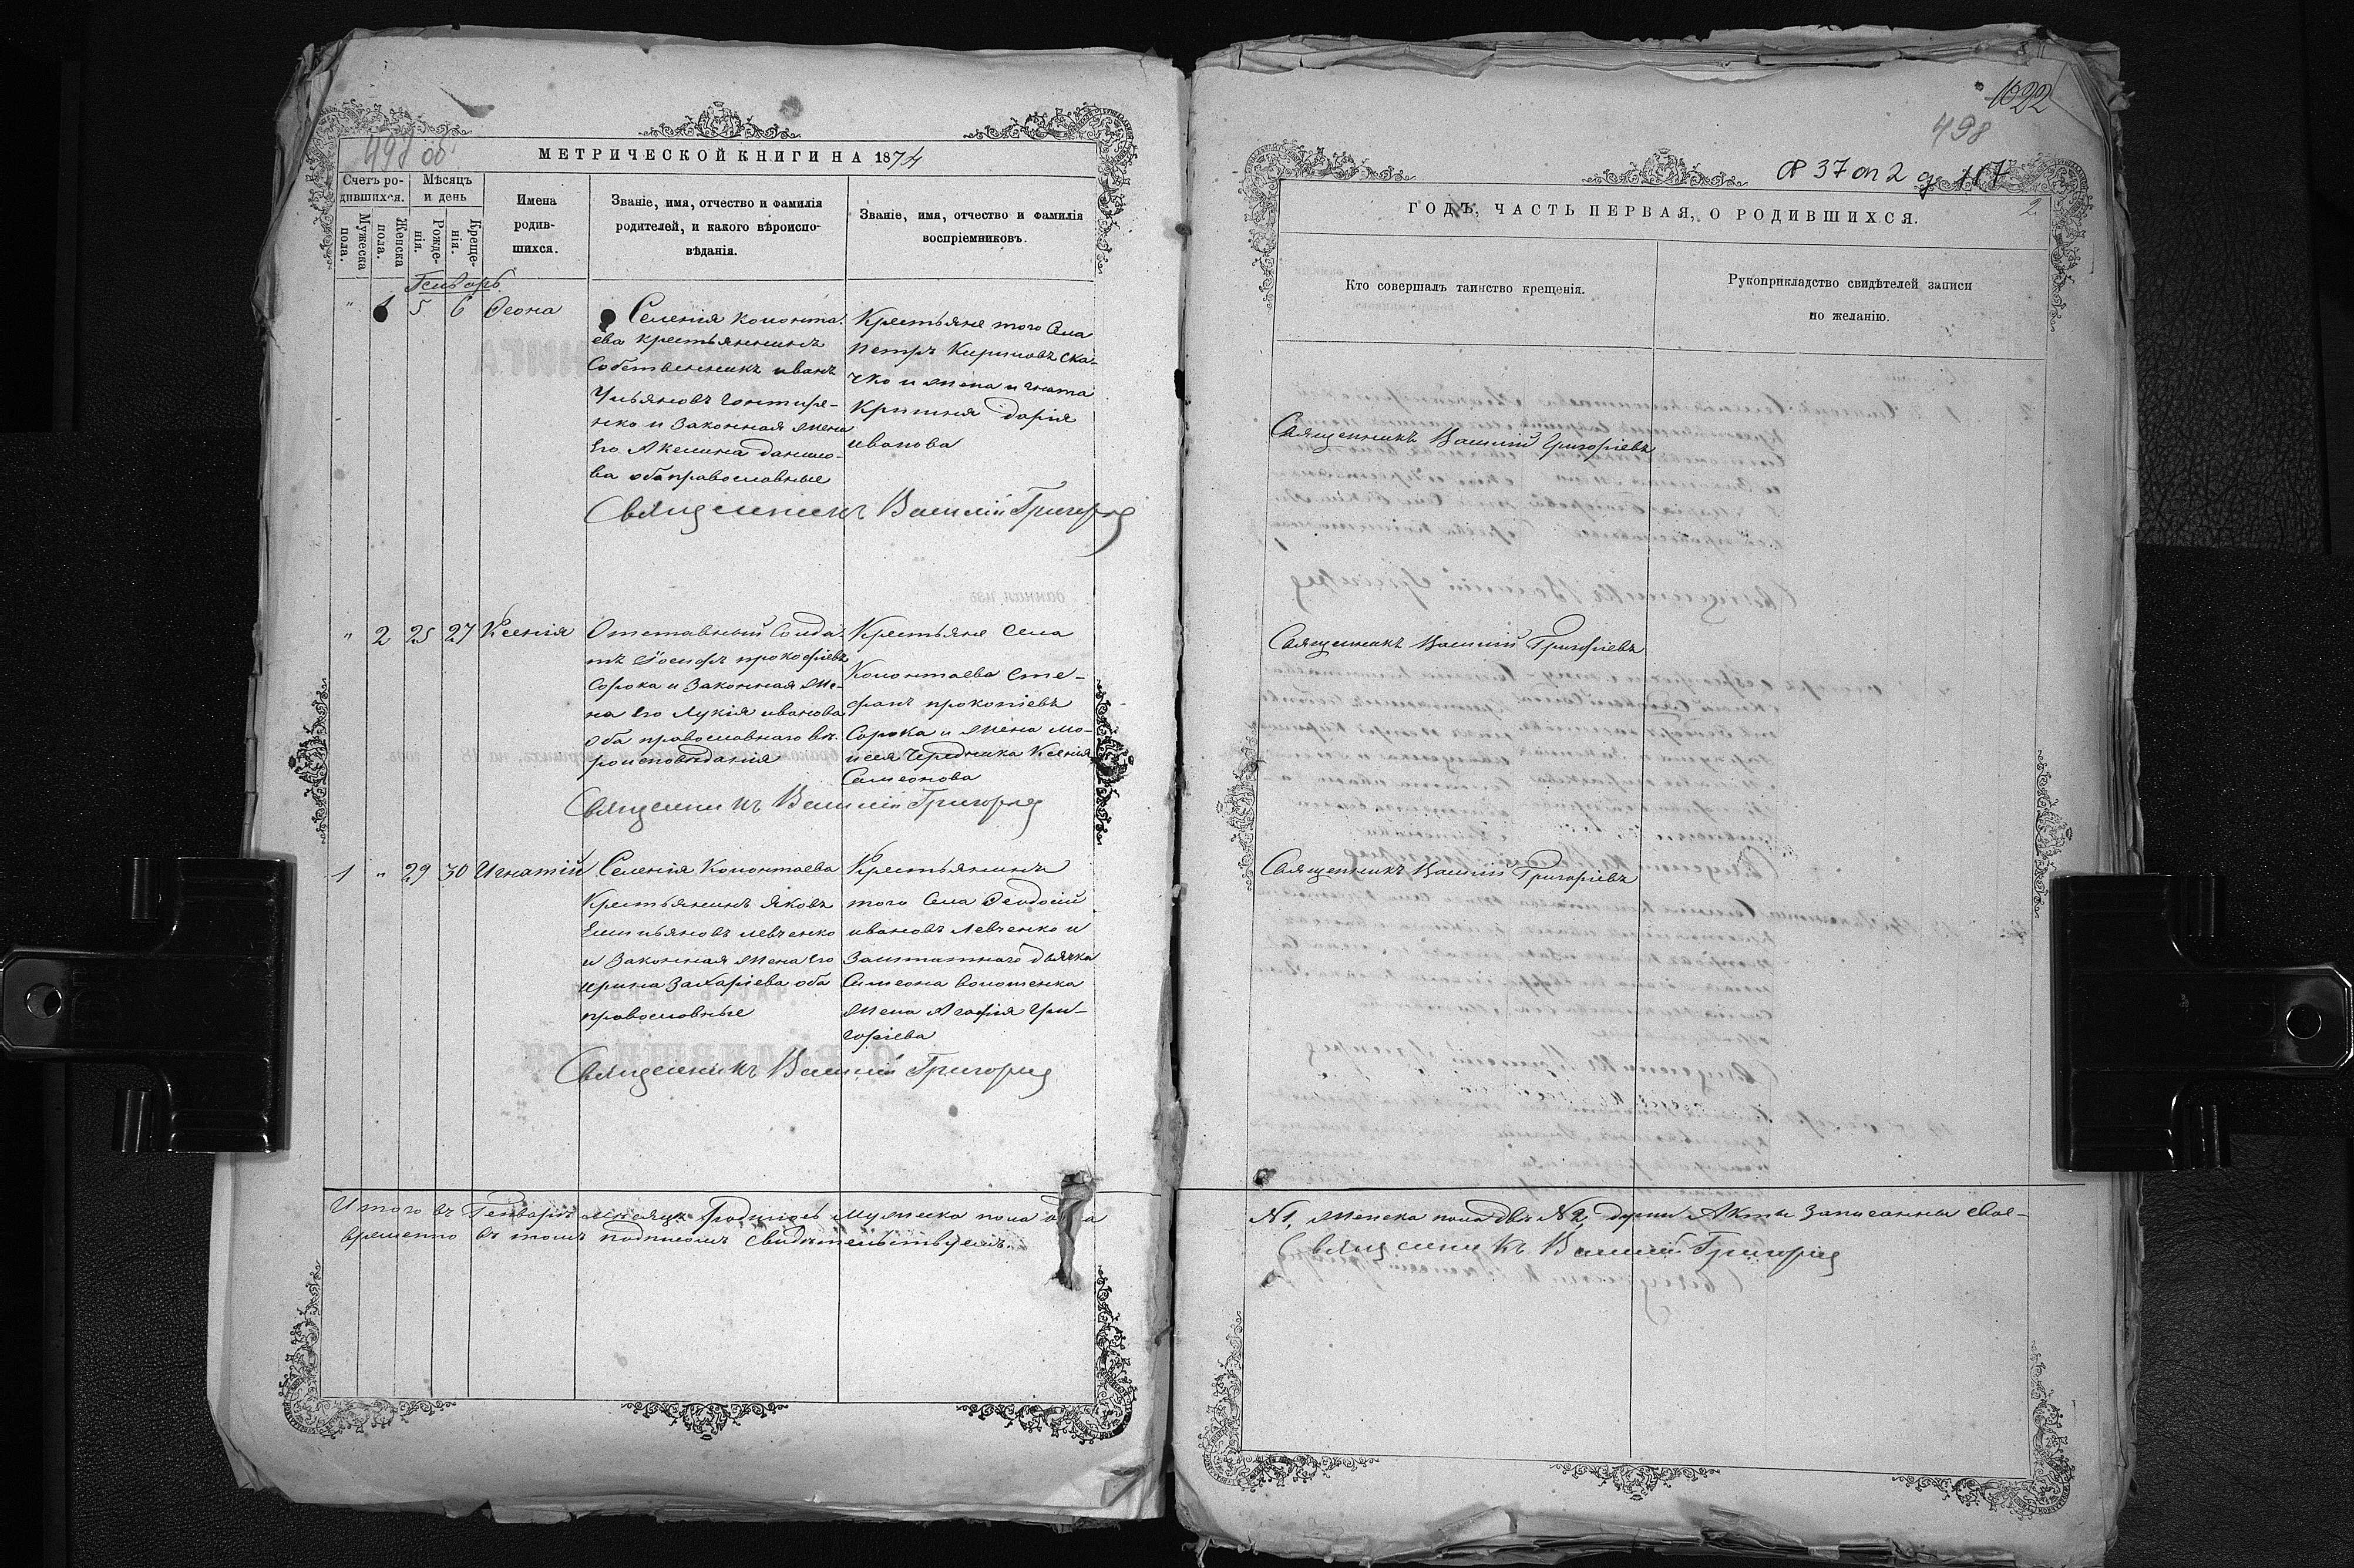 498 об
МЕТРИЧЕСКОЙ КНИГИ НА 1874
Счетъ ро-
дившихся.
Мѣсяцъ
и день
Мужеска
пола.
Женска
пола.
Рожде-
нія.
Креще-
нія.
Имена
родив-
шихся.
Званіе, имя, отчество и фамилія
родителей, и какого вѣроиспо-
вѣданія.
Званіе, имя, отчество и фамилія
воспріемниковъ.
Генварь
" 1 5 6 Феона
Селенія Колонта-
ева крестьянинъ
Собственникъ иванъ
Ульяновъ гонтаре-
нко и Законная жена
Его Акелина данило-
ва оба православные
Крестьяне того Села
Петръ Кириловъ Ска-
чко и жена игната
Крипня дарія
иванова
Священникъ Василій Григорьев
" 2 25 27 Ксенія
Отставный Солда-
тъ Іосифъ прокофіевъ
Сорока и Законная же-
на Его Лукія иванова
Оба православнаго вѣ-
роисповѣданія
Крестьяне Села
Колонтаева Сте-
фанъ прокопіевъ
Сорока и жена мо-
исея Чередника Ксенія
Симеонова
Священникъ Василій Григорьев
1 " 29 30 Игнатій
Селенія Колонтаева
Крестьянинъ Яковъ
Емильяновъ левченко
и Законная жена Его
ирина Захаріева оба
православные
Крестьянинъ
того Села Феодосій
ивановъ Левченко и
Заштатнаго дьячка
Симеона волошенка
жена Агафія Гри-
горіева
Священникъ Василій Григорьев
Итого въ Генварѣ мѣсяцѣ родилось мужеска пола одна
временно въ томъ подписомъ свидѣтельствуемъ.
1022
498
Ф 37 оп 2 д 117
2.
ГОДЪ, ЧАСТЬ ПЕРВАЯ, О РОДИВШИХСЯ.
Кто совершалъ таинство крещенія.
Рукоприкладство свидѣтелей записи
по желанію.
Священникъ Василій Григоріевъ
Священникъ Василій Григоріевъ
Священникъ Василій Григоріевъ
№ 1, женска пола двѣ № 2, души Акты Записанны Свое-
Священникъ Василій Григорьев